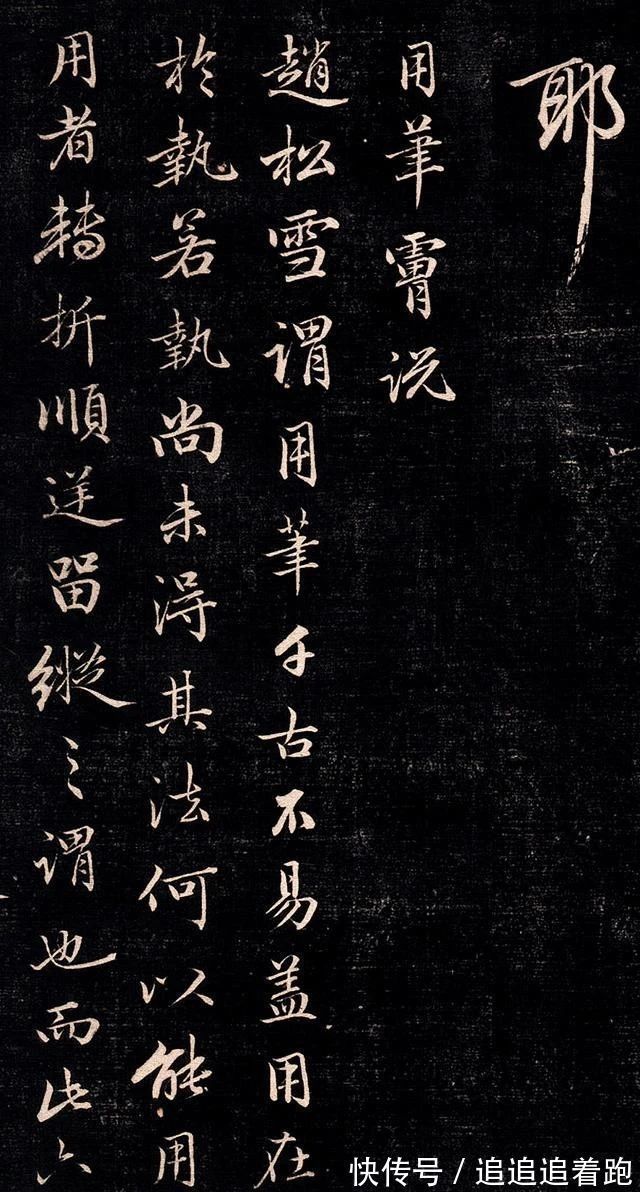 耶
用筆膚说
趙松雪谓用筆千古不易盖用在
於執若執尚未得其法何以能用
用者轉折順逆留縱之谓也而此六
快传号 / 追追追着跑